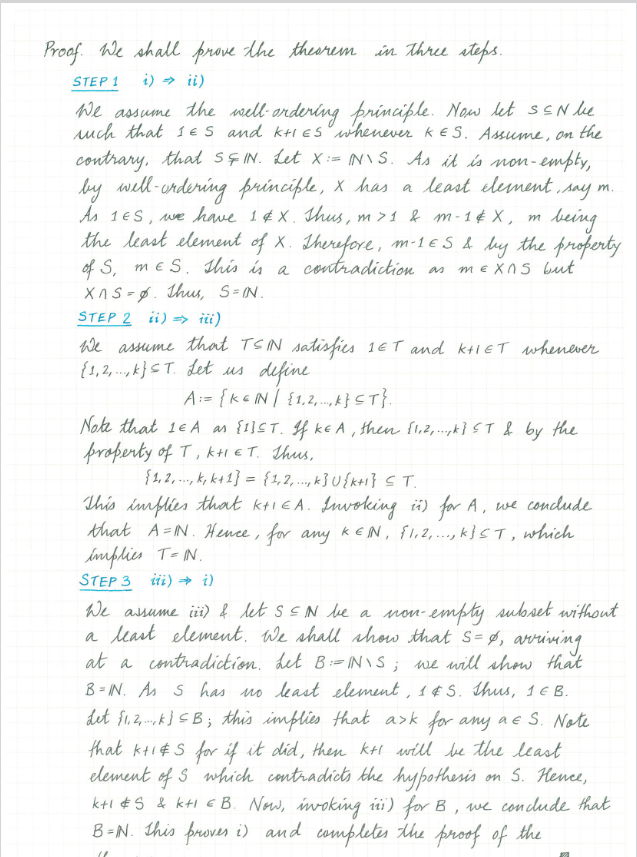 Proof. We shall prove the theorem in three steps.
STEP 1 i) ⇒ ii)
We assume the well-ordering principle. Now let S ⊆ ℕ be
such that 1 ∈ S and k+1 ∈ S whenever k ∈ S. Assume, on the
contrary, that S ⊊ ℕ. Let X := ℕ \ S. As it is non-empty,
by well-ordering principle, X has a least element, say m.
As 1 ∈ S, we have 1 ∉ X. Thus, m > 1 & m-1 ∉ X, m being
the least element of X. Therefore, m-1 ∈ S & by the property
of S, m ∈ S. This is a contradiction as m ∈ X ∩ S but
X ∩ S = ∅. Thus, S = ℕ.
STEP 2 ii) ⇒ iii)
We assume that T ⊆ ℕ satisfies 1 ∈ T and k+1 ∈ T whenever
{1, 2, ..., k} ⊆ T. Let us define
A := {k ∈ ℕ | {1, 2, ..., k} ⊆ T}.
Note that 1 ∈ A as {1} ⊆ T. If k ∈ A, then {1, 2, ..., k} ⊆ T & by the
property of T, k+1 ∈ T. Thus,
{1, 2, ..., k, k+1} = {1, 2, ..., k} ∪ {k+1} ⊆ T.
This implies that k+1 ∈ A. Invoking ii) for A, we conclude
that A = ℕ. Hence, for any k ∈ ℕ, {1, 2, ..., k} ⊆ T, which
implies T = ℕ.
STEP 3 iii) ⇒ i)
We assume iii) & let S ⊆ ℕ be a non-empty subset without
a least element. We shall show that S = ∅, arriving
at a contradiction. Let B := ℕ \ S; we will show that
B = ℕ. As S has no least element, 1 ∉ S. Thus, 1 ∈ B.
Let {1, 2, ..., k} ⊆ B; this implies that a > k for any a ∈ S. Note
that k+1 ∉ S for if it did, then k+1 will be the least
element of S which contradicts the hypothesis on S. Hence,
k+1 ∉ S & k+1 ∈ B. Now, invoking iii) for B, we conclude that
B = ℕ. This proves i) and completes the proof of the